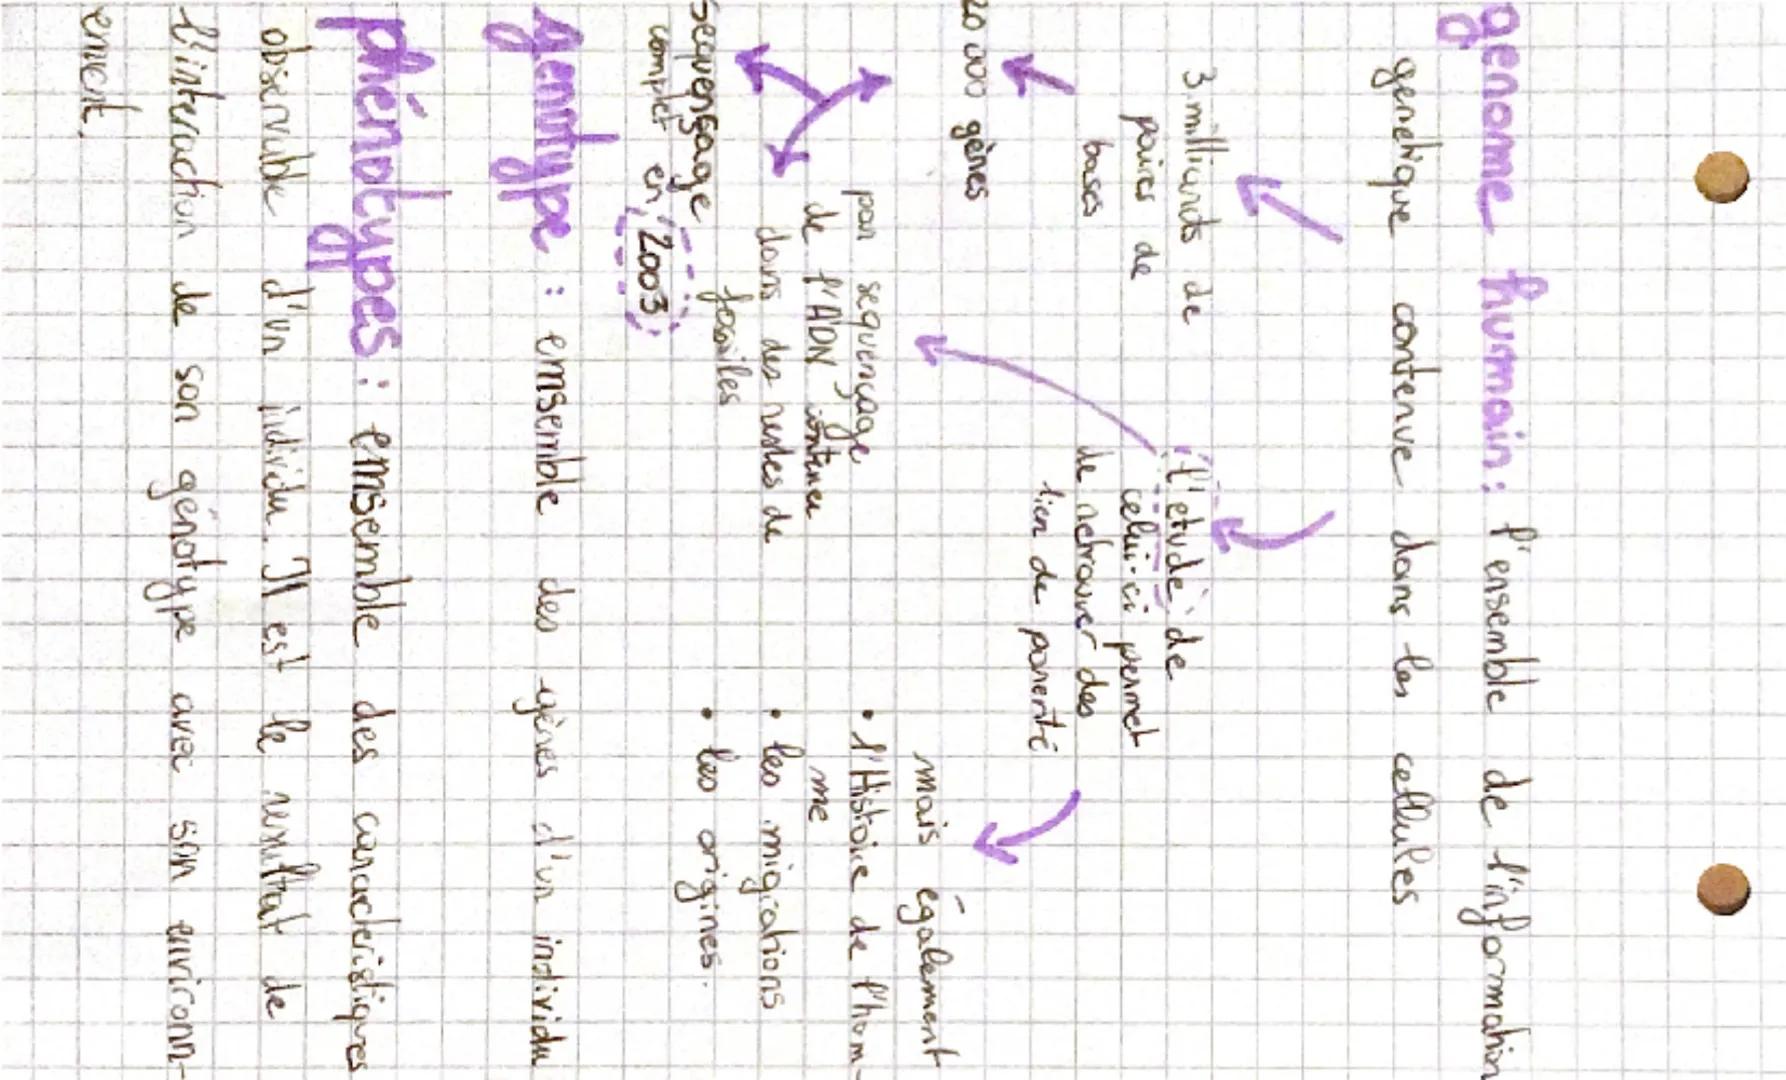 genome humain : l'ensemble de l'information
genetique contenue dans les cellules
3 milliards de
paires de
bases
20 000 gènes
l'etude de
celui-ci permet
de retrouver des
lien de parenté
mais également
• l'Histoire de l'hom-
me
• les migrations
• les origines.
par sequençage
de l'ADN contenu
dans des restes de
fossiles
sequensage
complet en 2003
genotype : ensemble des gènes d'un individu
phénotypes : ensemble des caracteristiques
observable d'un individu. Il est le resultat de
l'interaction de son génotype avec son environn-
ement.